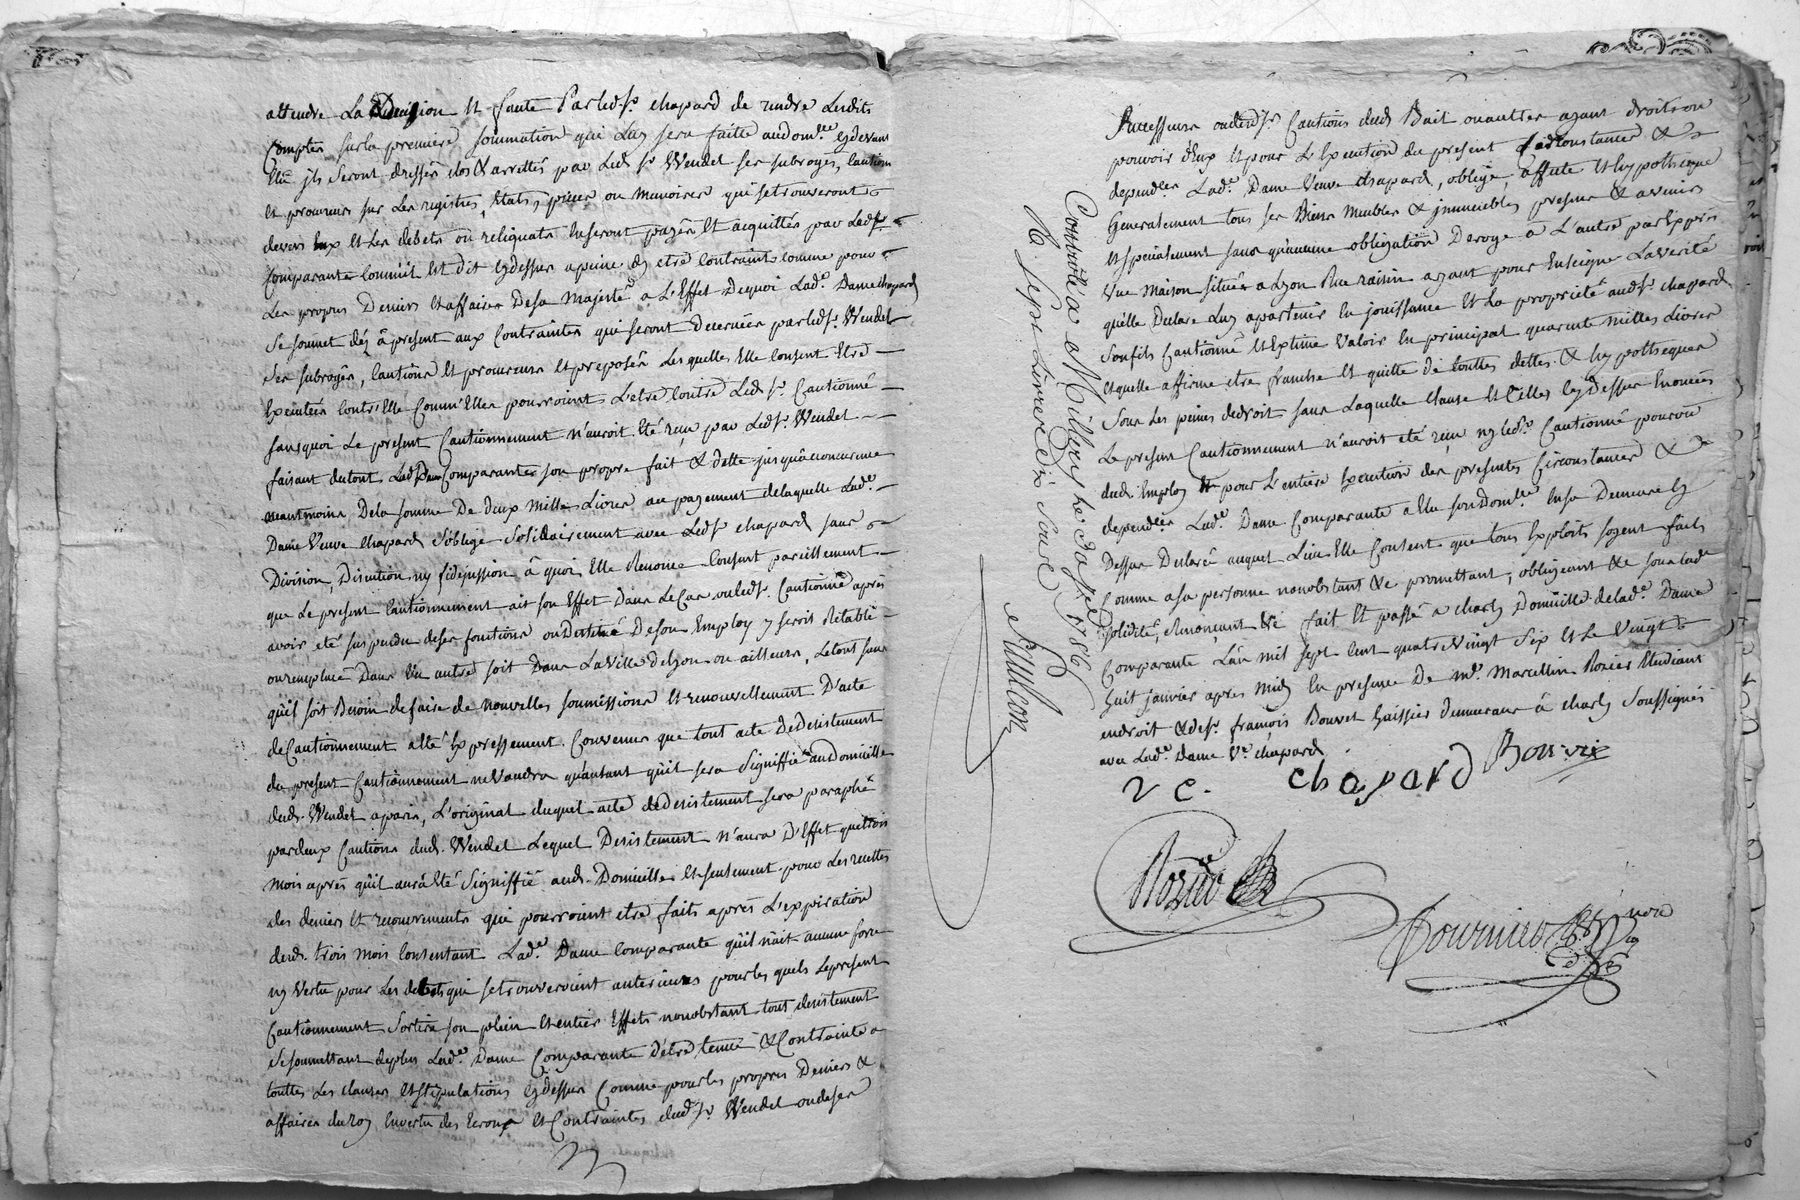 attendre La Decision Et faute Par led. Sr. chapard de rendre Lesdits
Comptes sur la premiere sommation qui Luy sera faite aud domlle cydevant
Elu jls Seront dressés clos & arrettés par Led. Sr Wendel ses subrogés, cautions
Et procureurs sur Les registres, Etats, pieces ou memoires qui se trouveront
devers Eux Et Les debets ou reliquats En seront payés Et acquittés par Lad.
Comparante Comme Est dit cydessus a peine dy etre Contrainte Comme pour
Les propres Deniers Et affaires De sa Majesté a L'Effet De quoi Lad.e Dame chapard
Se soumet dés à present aux Contraintes qui seront decernées par led. Sr. Wendel
Ses subrogés, Cautions Et procureurs Et preposés Lesquelles Elle consent Etre
Executées contr'Elle Comm'Elles pourroient L'etre Contre Led. Sr. Cautionné
sans quoi Le present Cautionnement n'auroit Eté reçu par Led. Sr. Wendel
faisant du tout Lad. Dame Comparante son propre fait & dette jusqu'à concurrence
neantmoins De la somme De deux mille Livres au payement de laquelle Lad.e
Dame Veuve chapard s'oblige Solidairement avec Led. Sr chapard sans
Division, Discution, ny fidejussion à quoi Elle Renonce Consent pareillement
que Le present Cautionnement ait son Effet Dans Le Cas ou led. Sr. Cautionné après
avoir eté suspendu de ses fonctions ou Destitué De son Employ y seroit Retabli
ou remplacé Dans Un autre soit Dans La Ville de Lyon ou ailleurs, Le tout sans
qu'il soit Besoin de faire de nouvelles soumissions Et renouvellement D'acte
de Cautionnement a Eté Expressement Convenu que tout acte De Desistement
du present Cautionnement ne Vaudra qu'autant qu'il sera Signiffié au Domicille
dud. Wendel a paris, L'original duquel acte de desistement sera paraphé
par deux Cautions dud. Wendel Lequel Desistement n'aura D'Effet que trois
Mois après qu'il aura Eté Signiffié aud. Domicille Et seulement pour Les recettes
des deniers Et recouvrements qui pourroient etre faits après L'expiration
desd. trois mois Consentant Lad.e Dame Comparante qu'il n'ait aucune force
ny Vertu pour Les debets qui se trouveroient anterieurs pour les quels Le present
Cautionnement Sortira son plein Et entier Effet nonobstant tout desistement
Se soumettant de plus Lad.e Dame Comparante d'etre tenue & Contrainte a
touttes Les clauses Et stipulations cydessus Comme pour les propres Deniers &
affaires du roy En vertu des Ecroux Et Contraintes dud. Sr Wendel ou de ses
Successeurs ou desd. Srs Cautions dud. Bail ou autres ayant droit ou
pouvoir d'Eux Et pour L'Execution du present Circonstances &
dependces Lad.e Dame Veuve chapard, oblige, affecte Et hypotheque
Generalement tous ses Biens Meubles & jmmeubles presens & avenir
Et specialement sans qu'aucune obligation Deroge a L'autre par Expprès
Une Maison située a Lyon Rue raisin ayant pour Enseigne La Verité
qu'elle Declare Luy apartenir En jouissance Et La propriété aud. Sr. chapard
Son fils Cautionné Et Extime Valoir En principal quarente Milles Livres
Laquelle affirme etre franche Et quitte de touttes dettes & hypotheques
Sous Les peines de droit sans Laquelle Clause Et Celles cy dessus Enoncées
Le present Cautionnement n'auroit eté reçu ny led. Sr. Cautionné pourvu
dud. Employ Et pour L'entiere Execution des presentes Circonstances & de
dependces Lad.e Dame Comparante a Elu son Domlle En sa Demeure cy
Dessus Declaré auquel Lieu Elle Consent que tous Exploits soyent faits
Comme a sa personne nonobstant &c promettant, obligeant &c sous lad.
solidité, Renonçant &c fait Et passé a charly Domicille de lad.e Dame
Comparante L'an mil sept Cent quatre Vingt Six Et Le Vingt
huit janvier après midy En presence De mr. Marcellin Rozier Etudiant
en droit & de Sr. françois Bouvet huissier demeurans à charly Soussignés
avec Lad.e Dame Ve. chapard.
Controlé a Millery le
R. sept Livres dix sous 1786
Saulcon
v c. chapard Bouvet
Rozier
Tournier